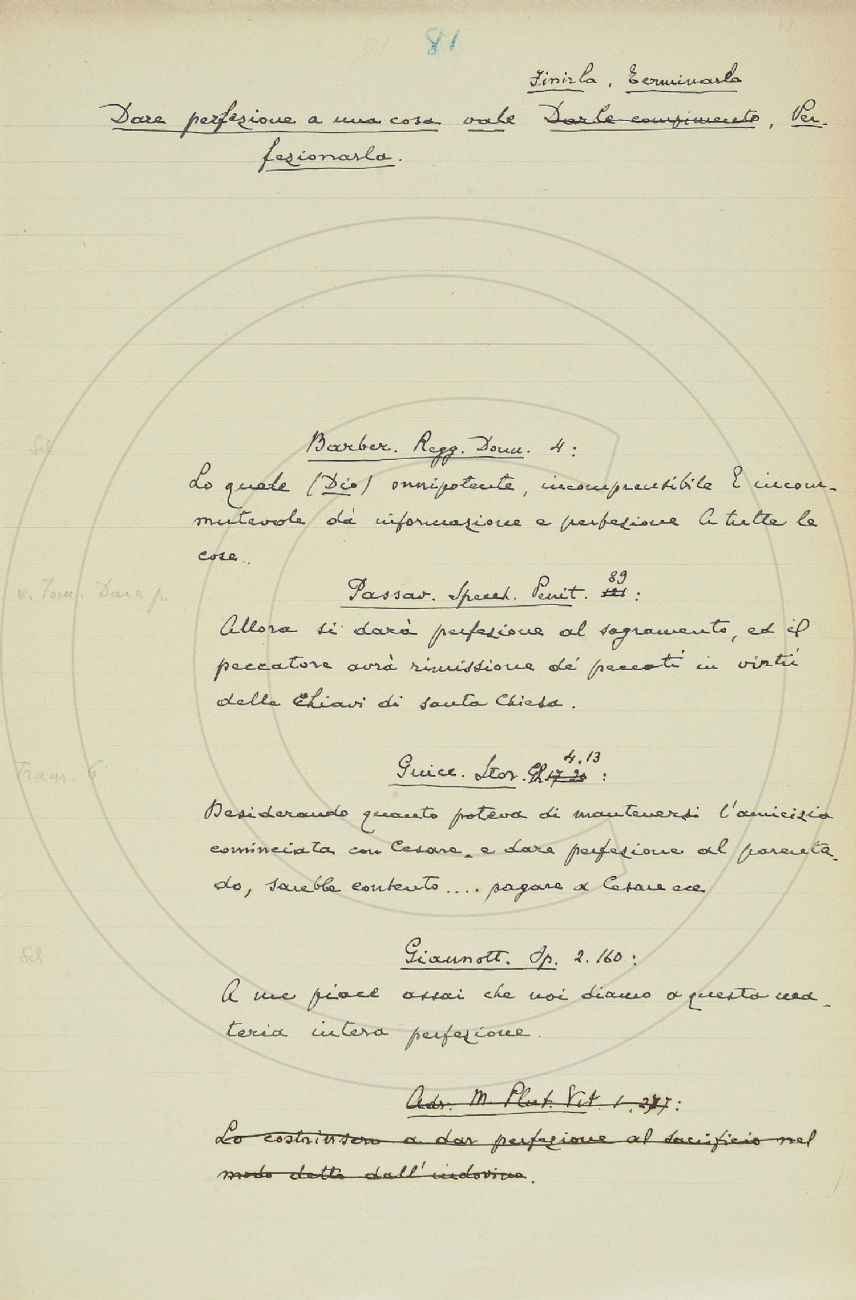 81
Finirla, Terminarla
Dare perfezione a una cosa vale Darle compimento, Per-
fezionarla.
Barber. Regg. Donn. 4:
Lo quale (Dio) onnipotente, incomprensibile E incom-
mutevole dà informazione e perfezione A tutte le
cose.
v. Tom. Dare p.
Passav. Specch. Penit. 89
Allora si darà perfezione al sagramento, ed il
peccatore avrà rimissione de' peccati in virtù
delle Chiavi di santa Chiesa.
Tram. 6
Guicc. Stor. 4.13
Desiderando quanto poteva di mantenersi l'amicizia
cominciata con Cesare, e dare perfezione al parenta-
do, sarebbe contento.... pagare a Cesare ecc
Sch
Giannott. Op. 2. 160:
A me piace assai che noi diamo a questa ma-
teria intera perfezione.
Adr. M. Plut. Vit. 1.
Lo costrinsero a dar perfezione al sacrificio nel
modo detto dall'indovino.